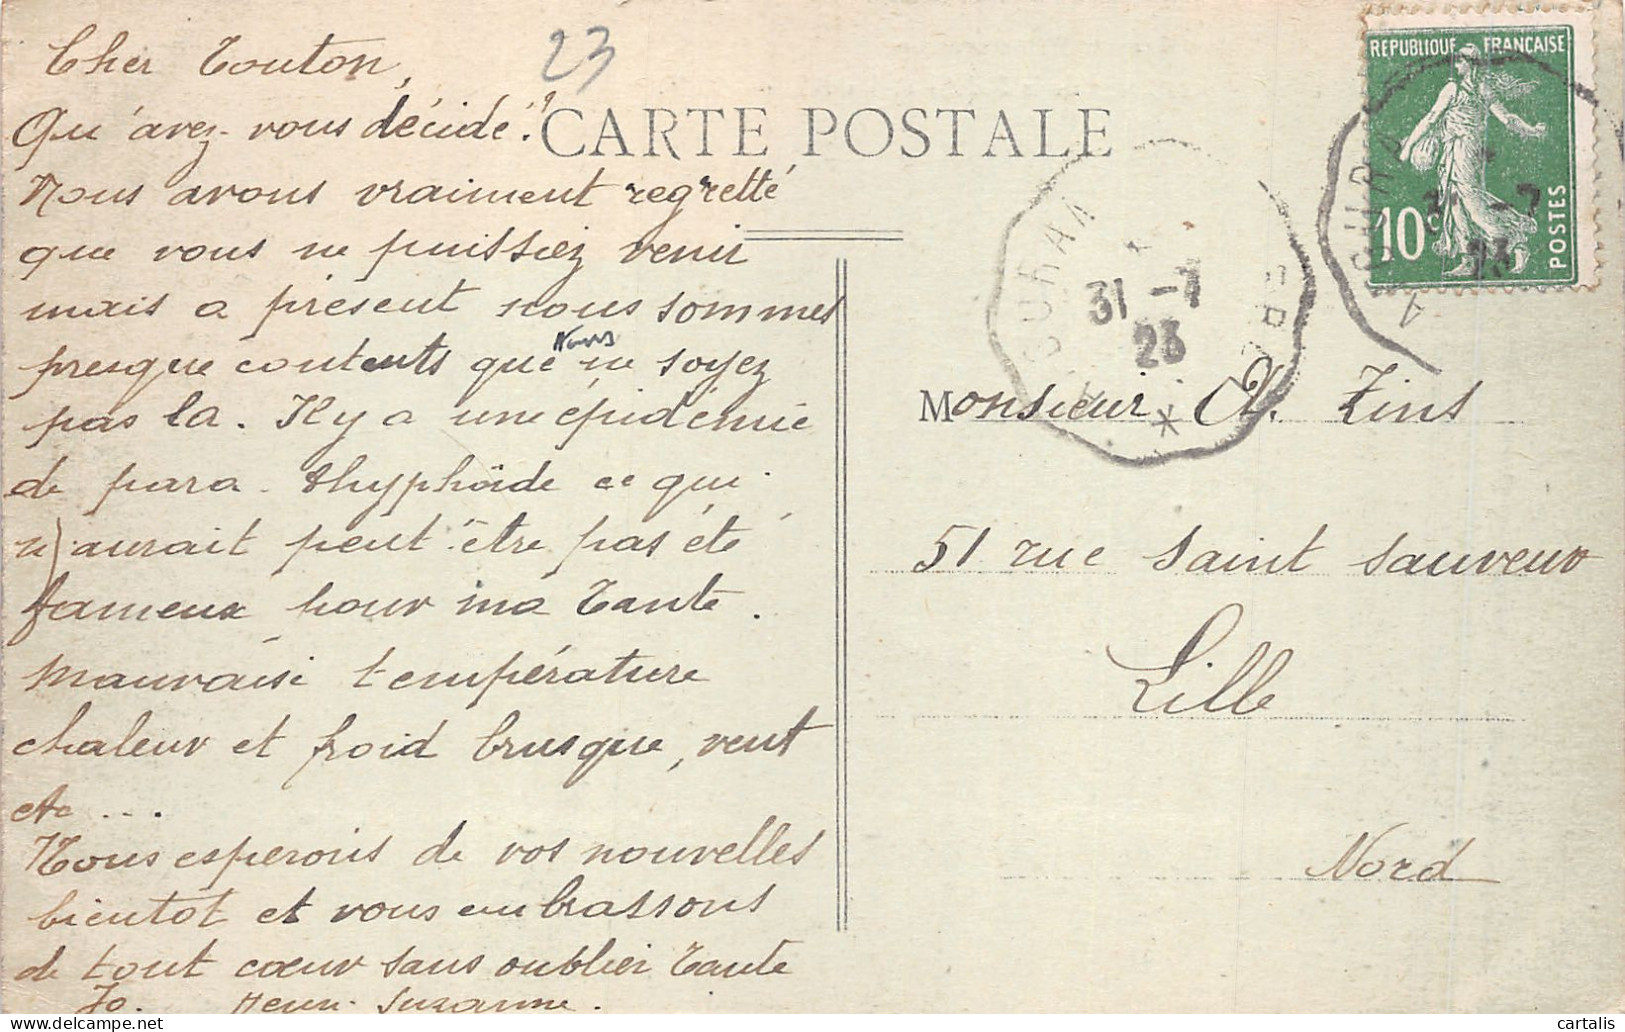 23
Cher Touton,
Qu'avez-vous décidé?
Nous avons vraiment regretté
que vous ne puissiez venir
mais a présent nous sommes
presque contents que vous ne soyez
pas là. Il y a une épidémie
de para-thyphoïde ce qui
n'aurait peut-être pas été
fameux pour ma Tante.
Mauvaise température
chaleur et froid brusque, vent
etc ...
Nous esperons de vos nouvelles
bientot et vous embrassons
de tout cœur sans oublier Tante
Jo. Henri. Suzanne.
CARTE POSTALE
REPUBLIQUE FRANÇAISE
10c
POSTES
31 -7
23
31 -7
23
Monsieur A. Zins
51 rue Saint Sauveur
Lille
Nord
cartalis